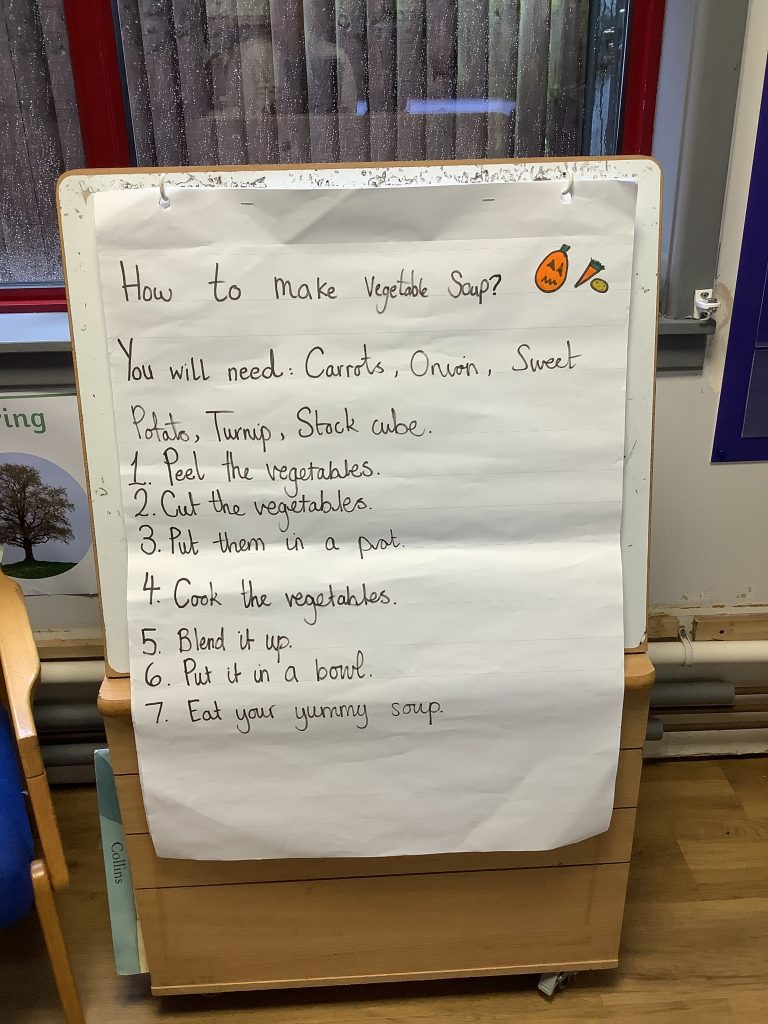 How to make Vegetable Soup?
You will need: Carrots, Onion, Sweet
Potato, Turnip, Stock cube.
1. Peel the vegetables.
2. Cut the vegetables.
3. Put them in a pot.
4. Cook the vegetables.
5. Blend it up.
6. Put it in a bowl.
7. Eat your yummy soup.
ring
Collins